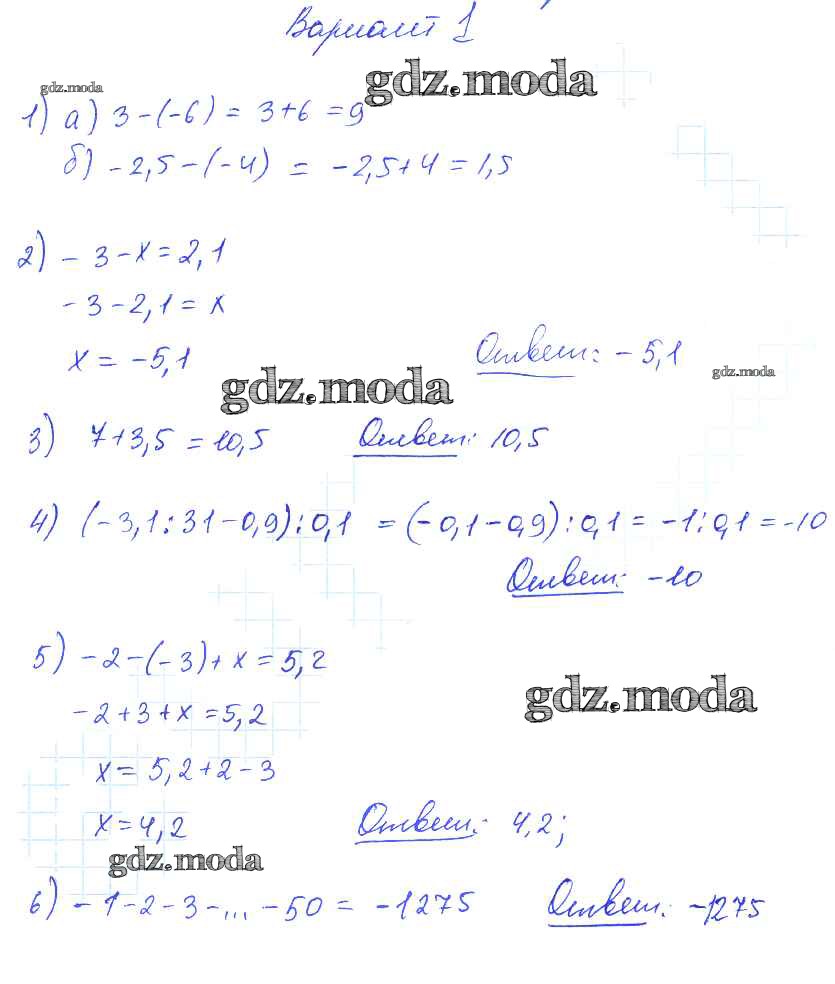 Вариант 1
gdz.moda
gdz.moda
1) а) 3-(-6) = 3+6 = 9
б) -2,5-(-4) = -2,5+4 = 1,5
2) -3-x=2,1
-3-2,1=x
x = -5,1 Ответ: -5,1
gdz.moda
gdz.moda
3) 7+3,5 = 10,5 Ответ: 10,5
4) (-3,1:31-0,9):0,1 = (-0,1-0,9):0,1 = -1:0,1 = -10
Ответ: -10
5) -2-(-3)+x=5,2
-2+3+x=5,2
gdz.moda
x= 5,2+2-3
x=4,2 Ответ: 4,2;
gdz.moda
6) -1-2-3-...-50 = -1275 Ответ: -1275